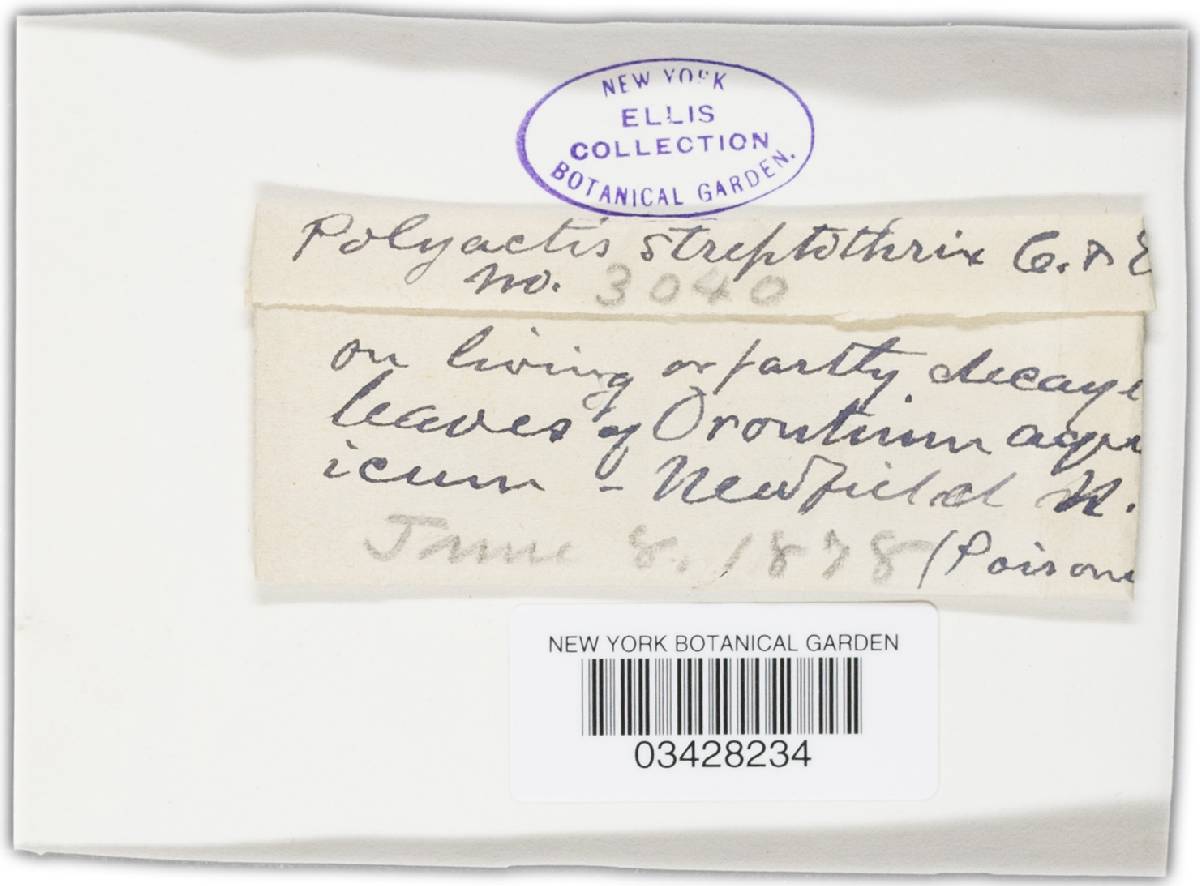 NEW YORK
ELLIS
COLLECTION
BOTANICAL GARDEN.
Polyactis streptothrix C. & E
no. 3040
on living or partly decaye
leaves of Orontium aqu
icum - Newfield N.
June 8, 1878 (Poison
NEW YORK BOTANICAL GARDEN
03428234